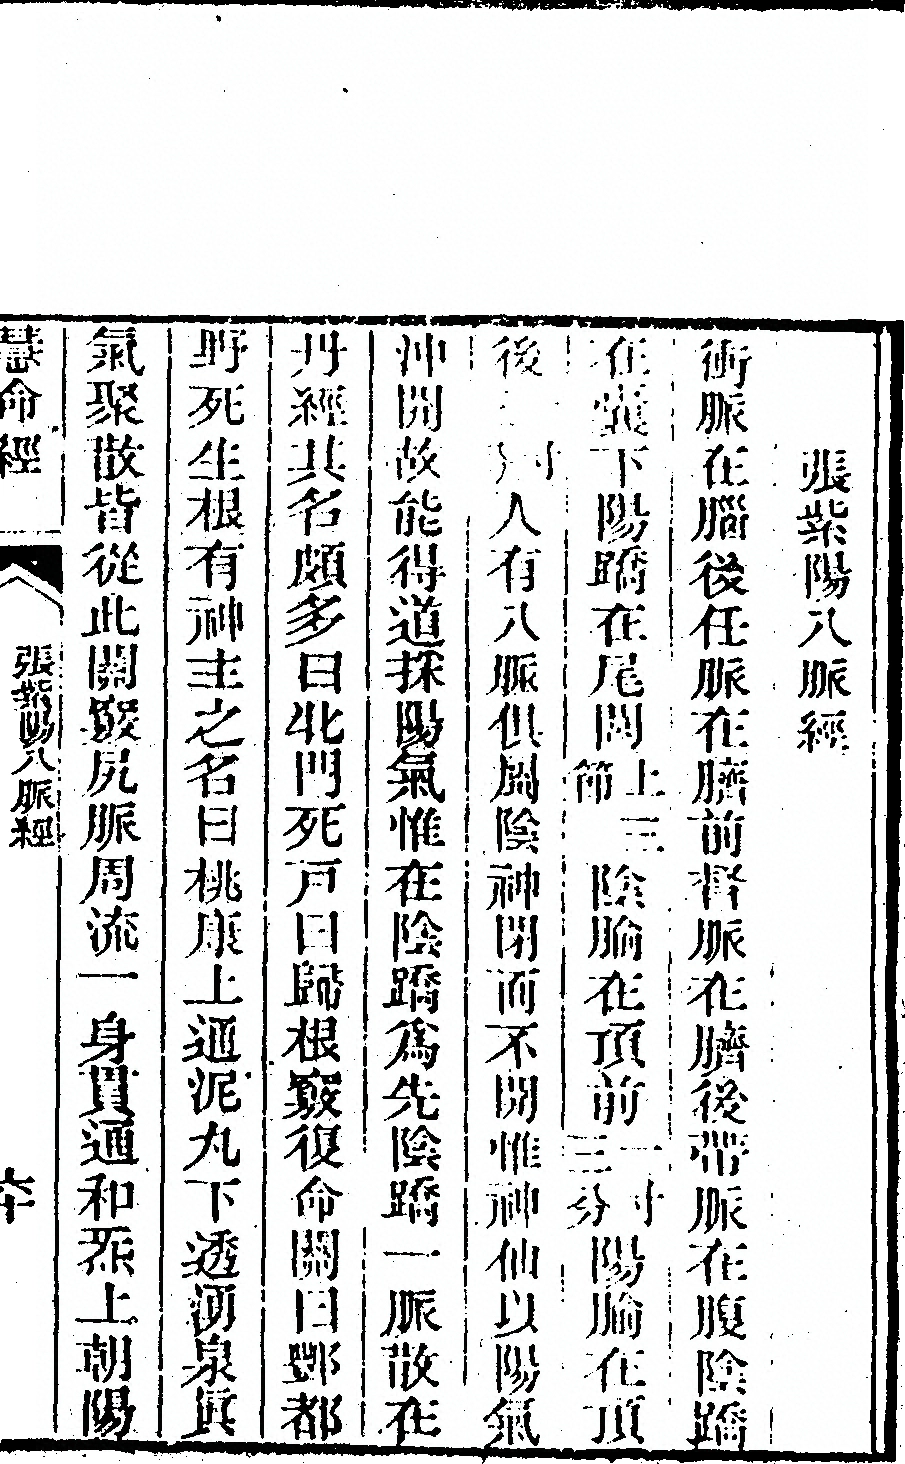 張紫陽八脈經
衝脈在腦後任脈在臍前督脈在臍後帶脈在腹陰蹻
在囊下陽蹻在尾閭上三節陰腧在頂前一寸三分陽腧在頂
後寸人有八脈俱屬陰神閉而不開惟神仙以陽氣
沖開故能得道採陽氣惟在陰蹻為先陰蹻一脈散在
丹經其名頗多曰牝門死戶曰歸根竅復命關曰酆都
野死生根有神主之名曰桃康上通泥丸下透湧泉眞
氣聚散皆從此關竅尻脈周流一身貫通和炁上朝陽
慧命經
張紫陽八脈經
卒